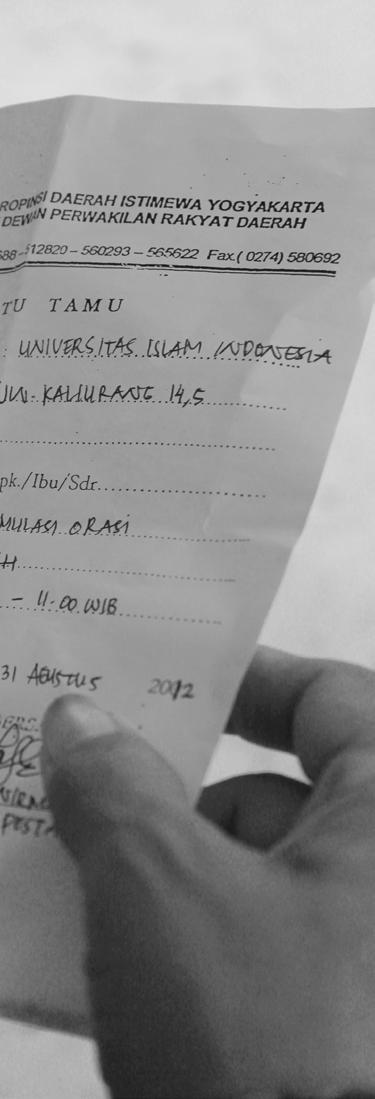 ROPINSI DAERAH ISTIMEWA YOGYAKARTA
DEWAN PERWAKILAN RAKYAT DAERAH
588 - 512820 – 560293 – 565622 Fax.( 0274) 580692
TU TAMU
: UNIVERSITAS ISLAM INDONESIA
JLN. KALIURANG 14,5
pk./Ibu/Sdr.
MULASI ORASI
H
– 11.00 WIB
31 AGUSTUS 2012